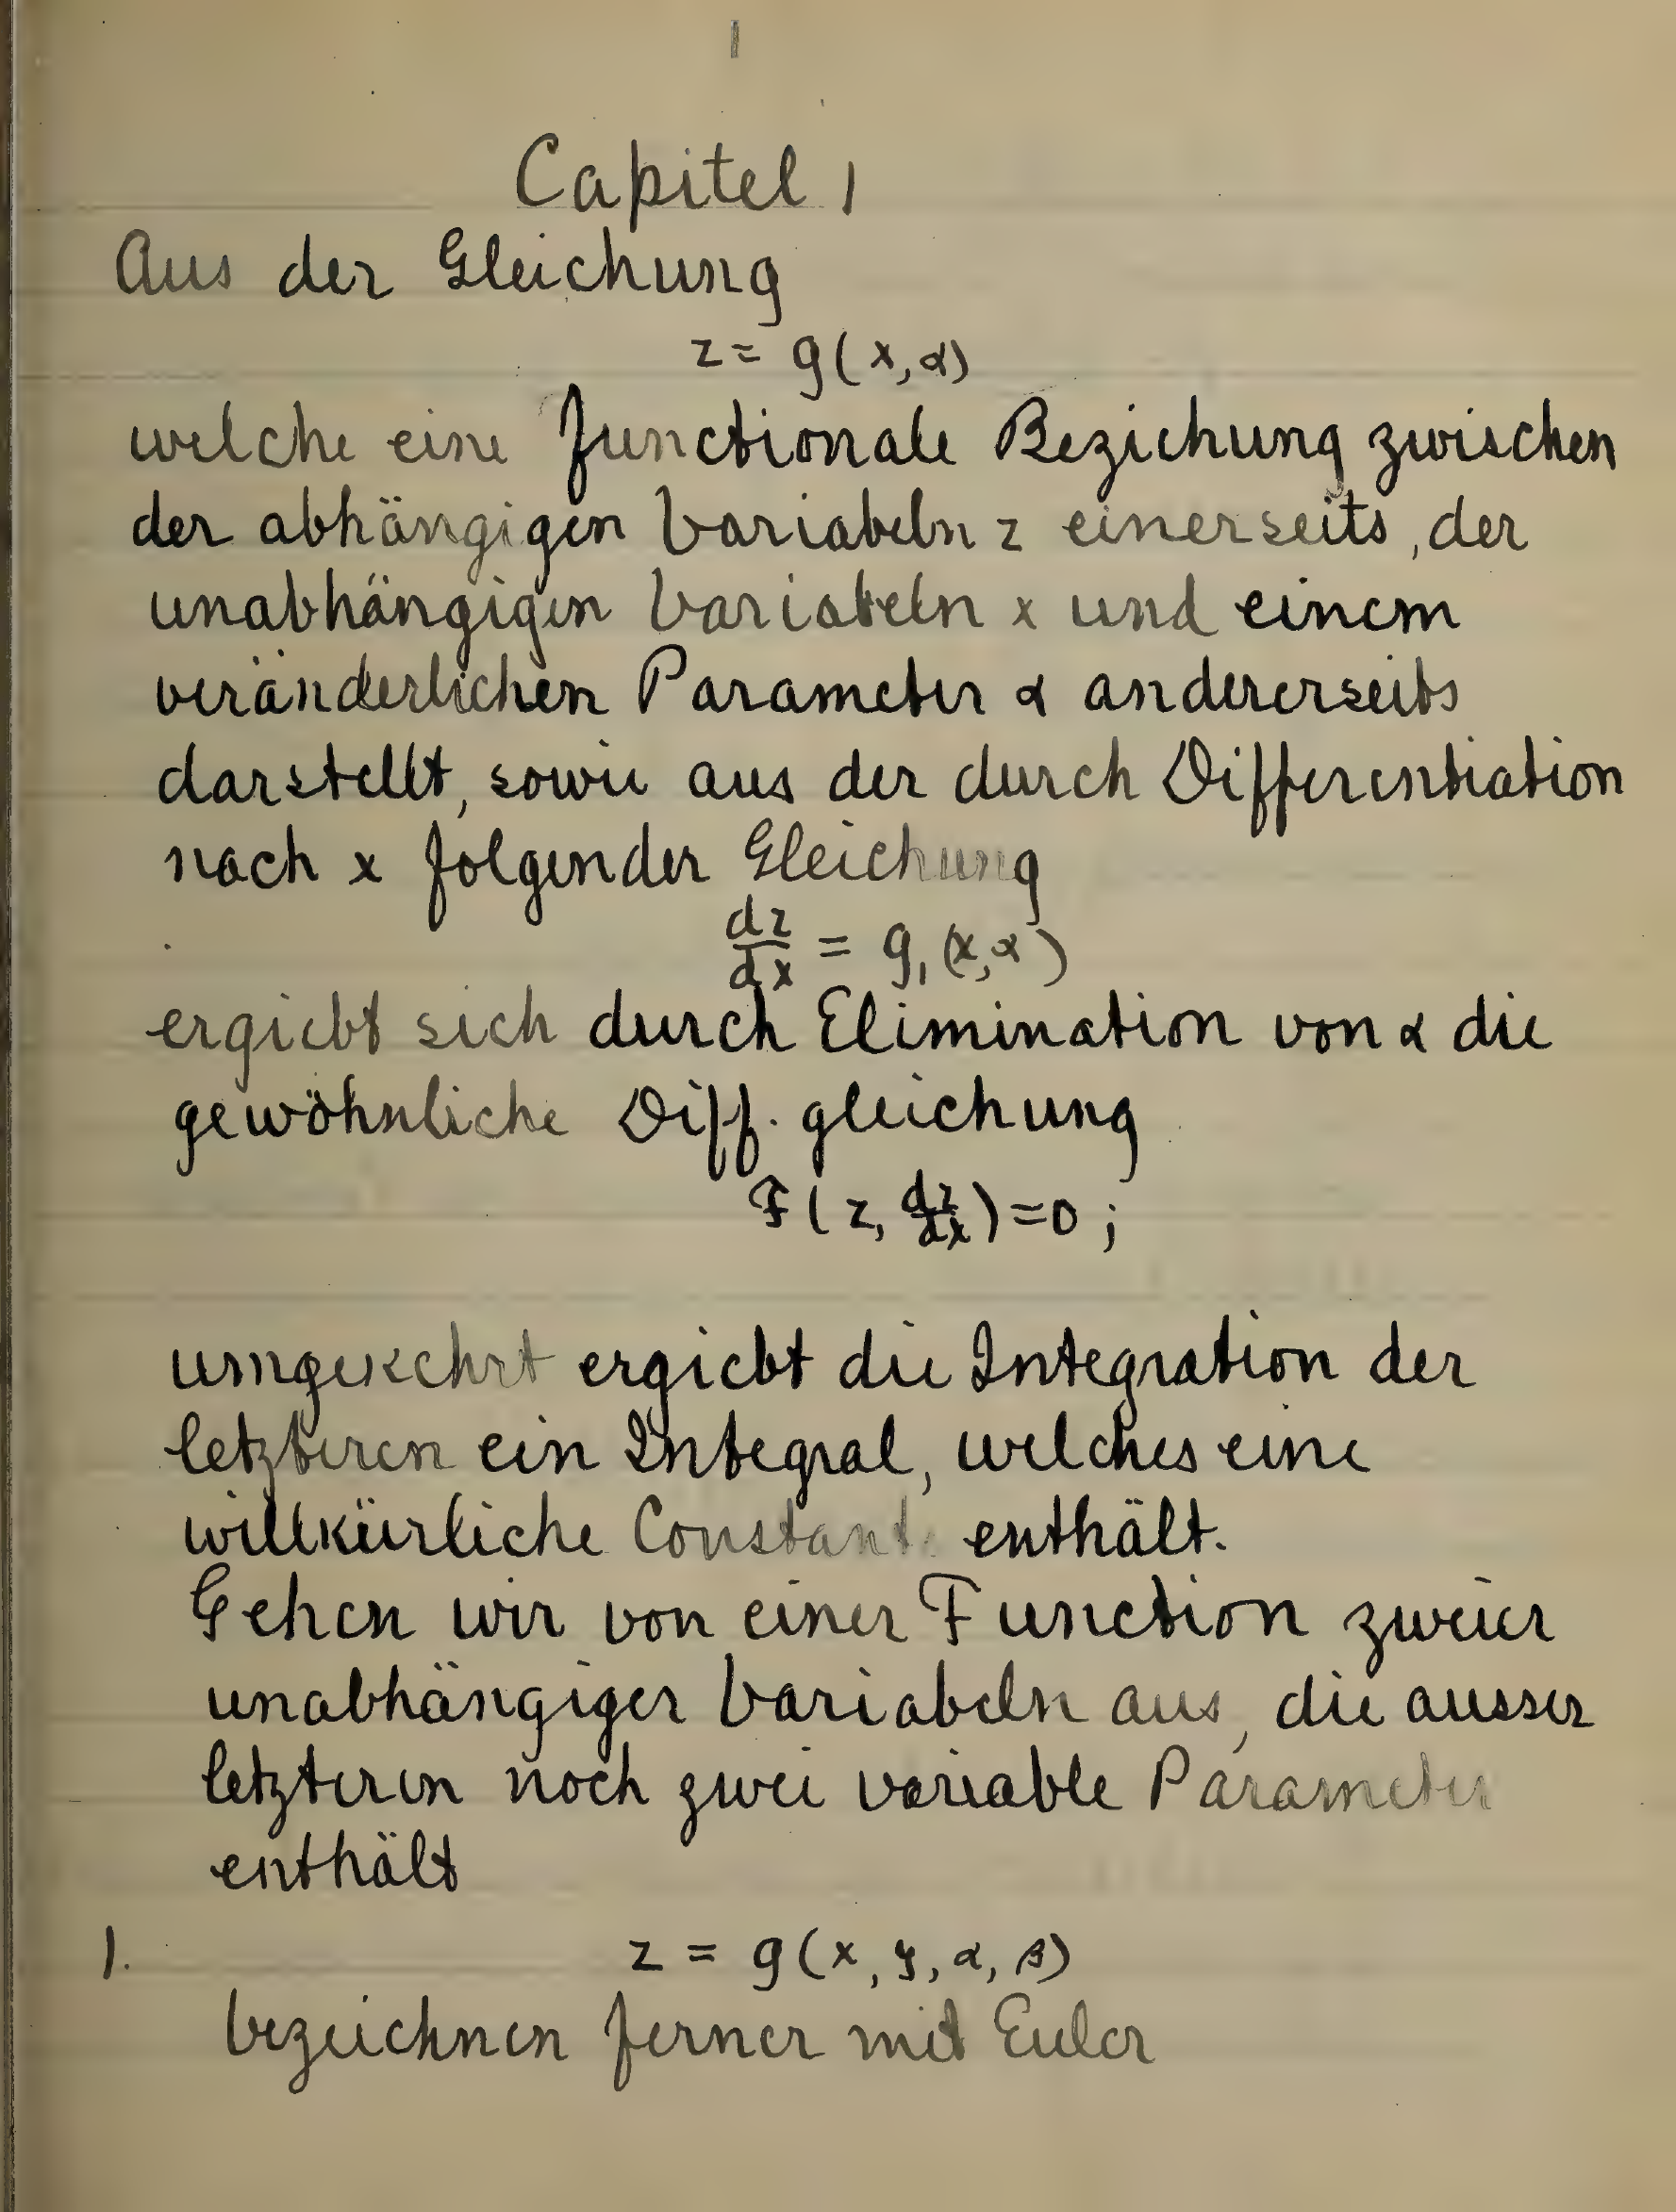 1
Capitel 1
Aus der Gleichung
z = g(x, α)
welche eine functionale Beziehung zwischen
der abhängigen Variabeln z einerseits, der
unabhängigen Variabeln x und einem
veränderlichen Parameter α andererseits
darstellt, sowie aus der durch Differentiation
nach x folgender Gleichung
dz/dx = g₁(x, α)
ergiebt sich durch Elimination von α die
gewöhnliche Diff. gleichung
F(z, dz/dx) = 0 ;
umgekehrt ergiebt die Integration der
letzteren ein Integral, welches eine
willkürliche Constante enthält.
Gehen wir von einer Function zweier
unabhängiger Variabeln aus, die ausser
letzteren noch zwei variable Parameter
enthält
1. z = g(x, y, α, β)
bezeichnen ferner mit Euler